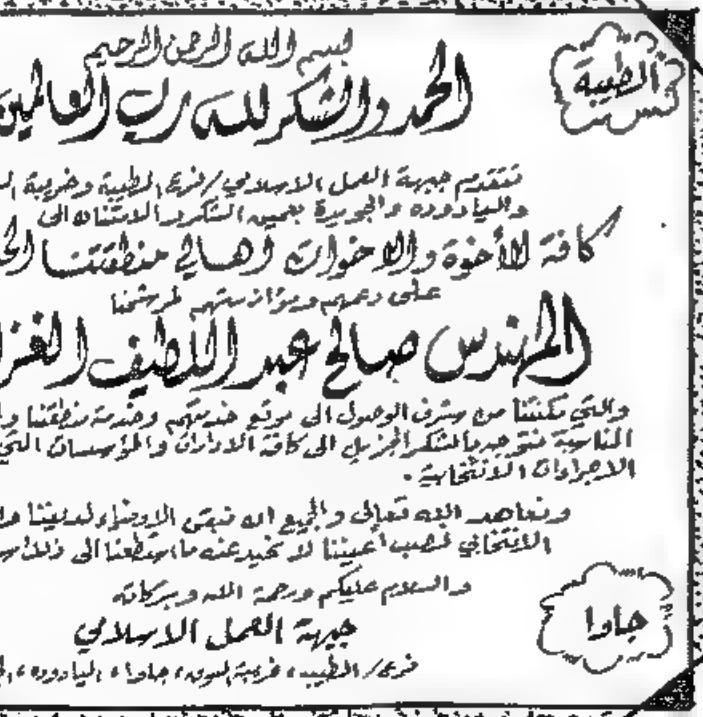 بسم الله الرحمن الرحيم
الطيبة
الحمد والشكر لله رب العالمين
تتقدم جبهة العمل الاسلامي / فرع الطيبة وخريبة
واليادودة والجويدة بعميق الشكر والامتنان الى
كافة الأخوة والاخوات أهالي منطقتنا
على دعمهم ومؤازرتهم لمرشحنا
المهندس صالح عبد اللطيف
والتي مكنتنا من شرف الوصول الى موقع خدمتهم وخدمة منطقتنا
المناسبة نتوجه بالشكر الجزيل الى كافة الادارات والمؤسسات التي
الاجراءات الانتخابية .
ونعاهد الله تعالى والجميع ان نبقى الاوفياء لديننا
الانتخابي نصب أعيننا لا نحيد عنه ما استطعنا الى ذلك
والسلام عليكم ورحمة الله وبركاته
جبهة العمل الاسلامي
جاوا
فرع / الطيبة ، خريبة السوق ، جاوا ، اليادودة ،